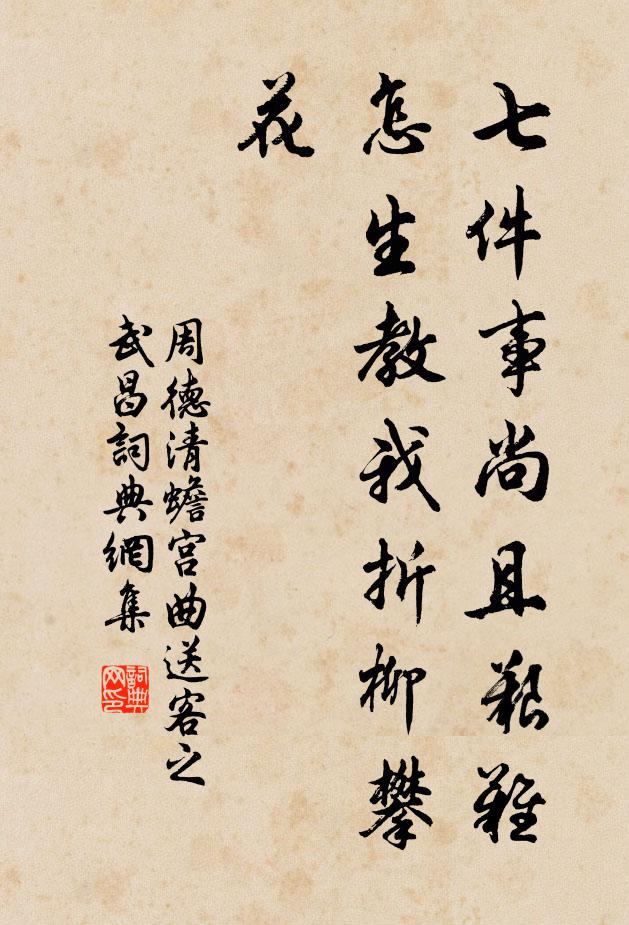 七件事尚且艱難
怎生教我折柳攀
花
周德清蟾宮曲送客之
武昌詞典網集
詞典
网印